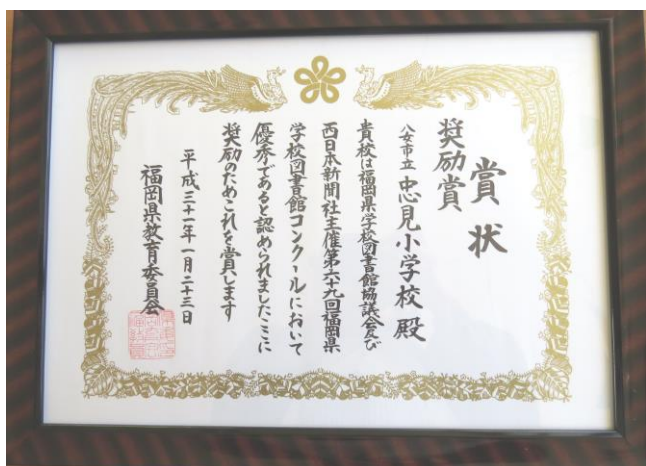 賞状
奨励賞
八女市立 忠見小学校 殿
貴校は福岡県学校図書館協議会及び
西日本新聞社主催第六十九回福岡県
学校図書館コンクールにおいて
優秀であると認められましたここに
奨励のためこれを賞します
平成三十一年一月二十三日
福岡県教育委員会